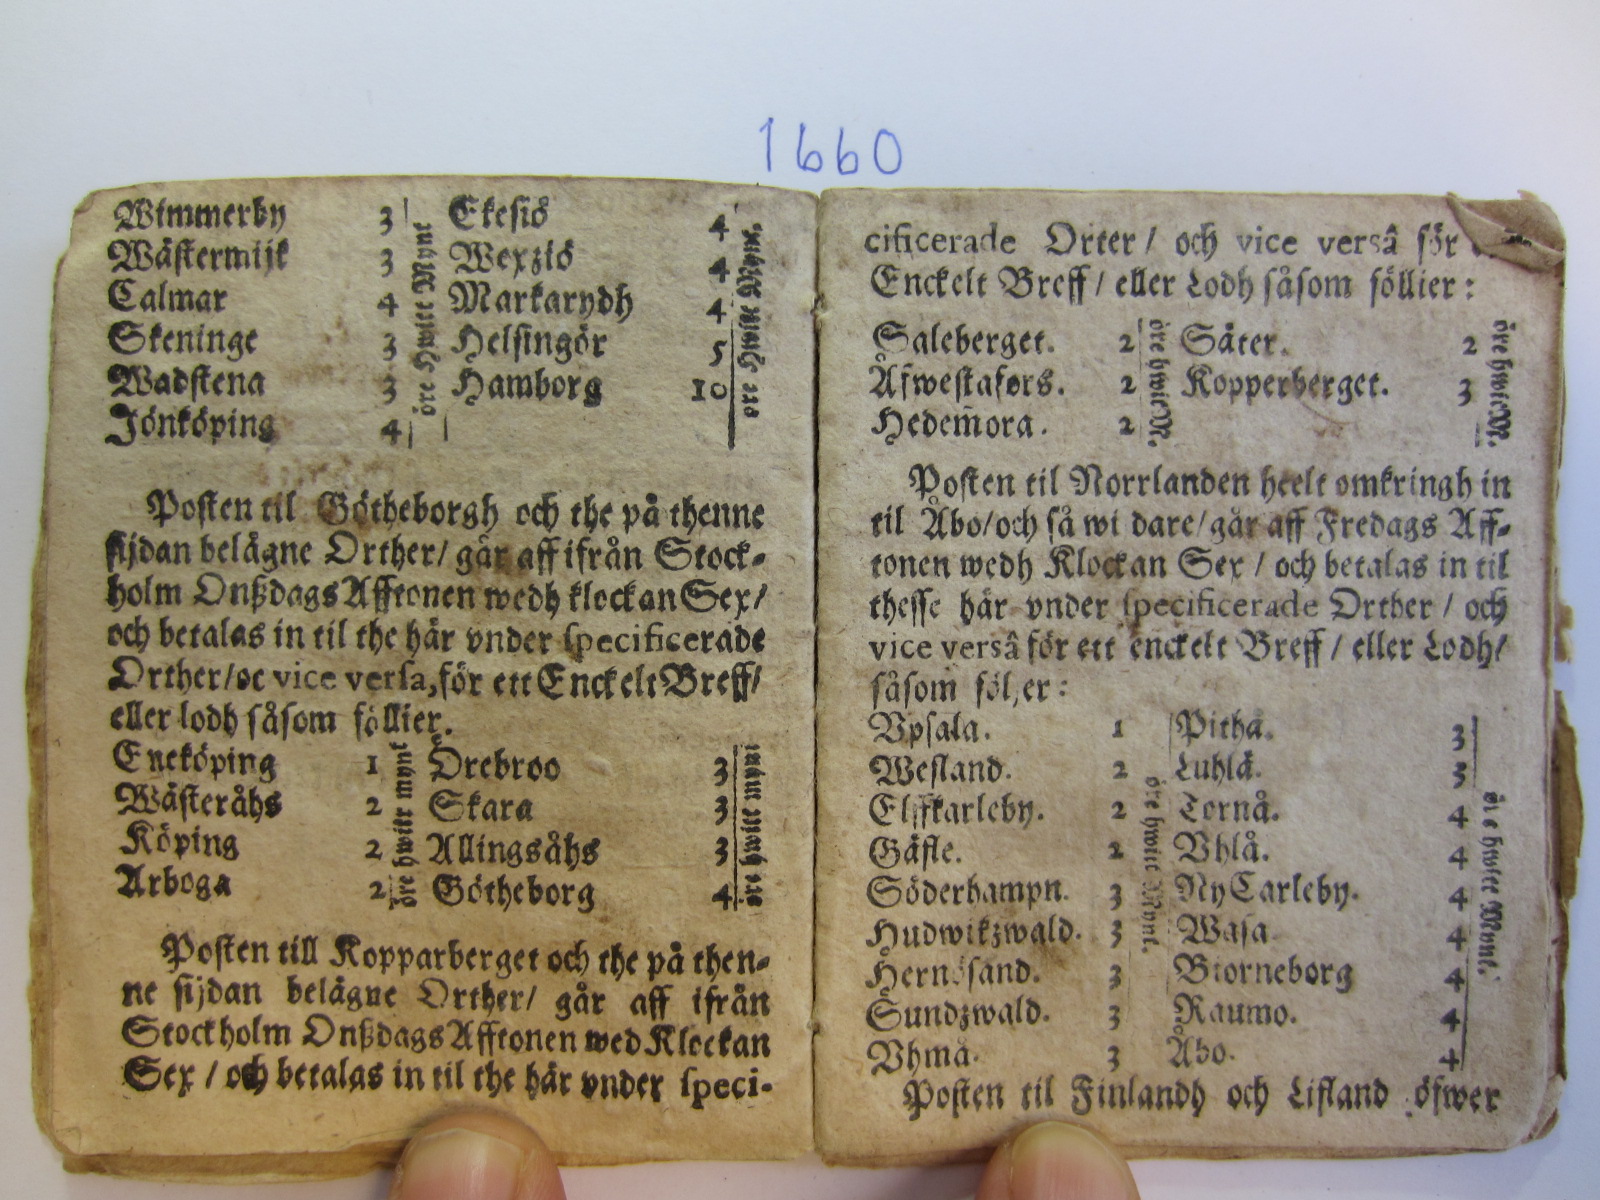 1660
Wimmerby 3 Ekesiö 4
Wästerwijk 3 Wexziö 4
Calmar 4 Markarydh 4
Skeninge 3 Helsingör 5
Wadstena 3 Hamborg 10
Jönköping 4
öre Hwitt Mynt
öre Hwitt Mynt.
Posten til Götheborgh och the på thenne
sijdan belägne Orther/ går aff ifrån Stock-
holm Onßdags Afftonen wedh klockan Sex/
och betalas in til the här vnder specificerade
Orther/oc vice versa, för ett Enckelt Breff/
eller lodh såsom föllier.
Eneköping 1 Örebroo 3
Wästeråhs 2 Skara 3
Köping 2 Allingsåhs 3
Arboga 2 Götheborg 4
öre hwitt mynt
öre hwitt mynt
Posten till Kopparberget och the på then-
ne sijdan belägne Orther/ går aff ifrån
Stockholm Onßdags Afftonen wed Klockan
Sex / och betalas in til the här vnder speci-
cificerade Orter / och vice versâ för
Enckelt Breff / eller Lodh såsom föllier :
Saleberget. 2 Säter. 2
Åfwestafors. 2 Kopperberget. 3
Hedem̃ora. 2
öre hwitt M.
öre hwitt M.
Posten til Norrlanden heelt omkringh in
til Åbo/och så wi dare/går aff Fredags Aff-
tonen wedh Klockan Sex / och betalas in til
thesse här vnder specificerade Orther / och
vice versâ för ett enckelt Breff / eller Lodh/
såsom föl,er :
Vpsala. 1 Pithå. 3
Wesland. 2 Luhlå. 3
Elffkarleby. 2 Tornå. 4
Gäfle. 2 Vhlå. 4
Söderhampn. 3 Ny Carleby. 4
Hudwikzwald. 3 Wasa. 4
Hernösand. 3 Biorneborg 4
Sundzwald. 3 Raumo. 4
Vhmå. 3 Åbo. 4
öre hwitt Mynt.
öre hwitt Mynt.
Posten til Finlandh och Lifland öfwer